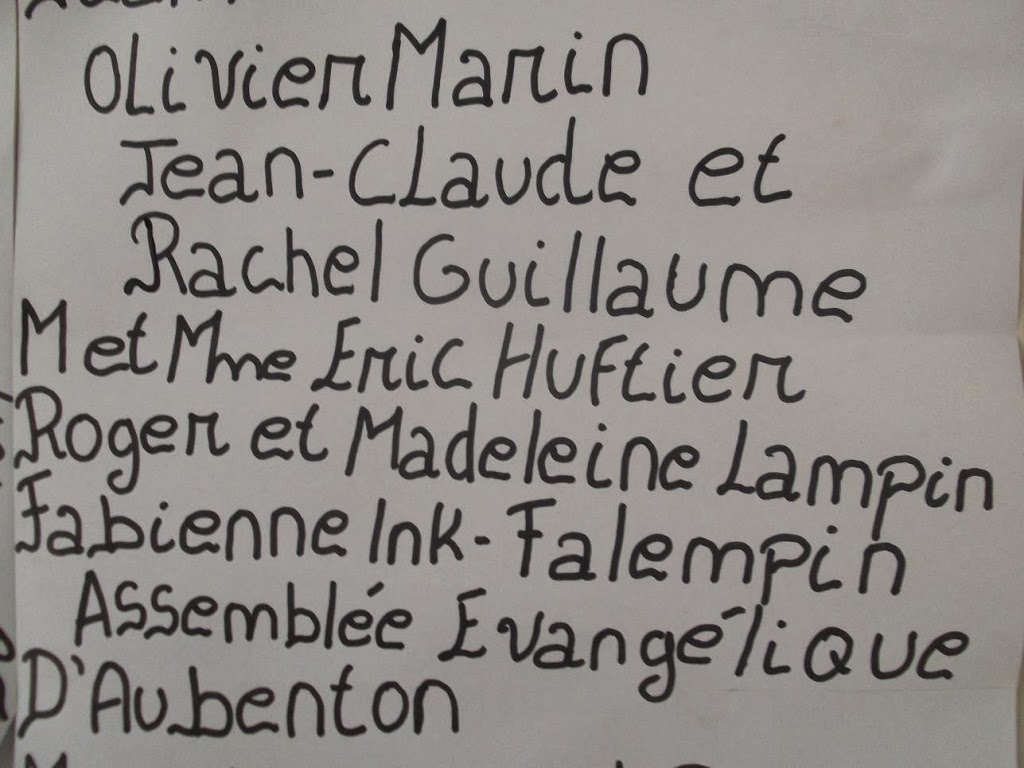 Olivier Marin
Jean-Claude et
Rachel Guillaume
M et Mme Eric Huftier
Roger et Madeleine Lampin
Fabienne Ink-Falempin
Assemblée Evangélique
D'Aubenton